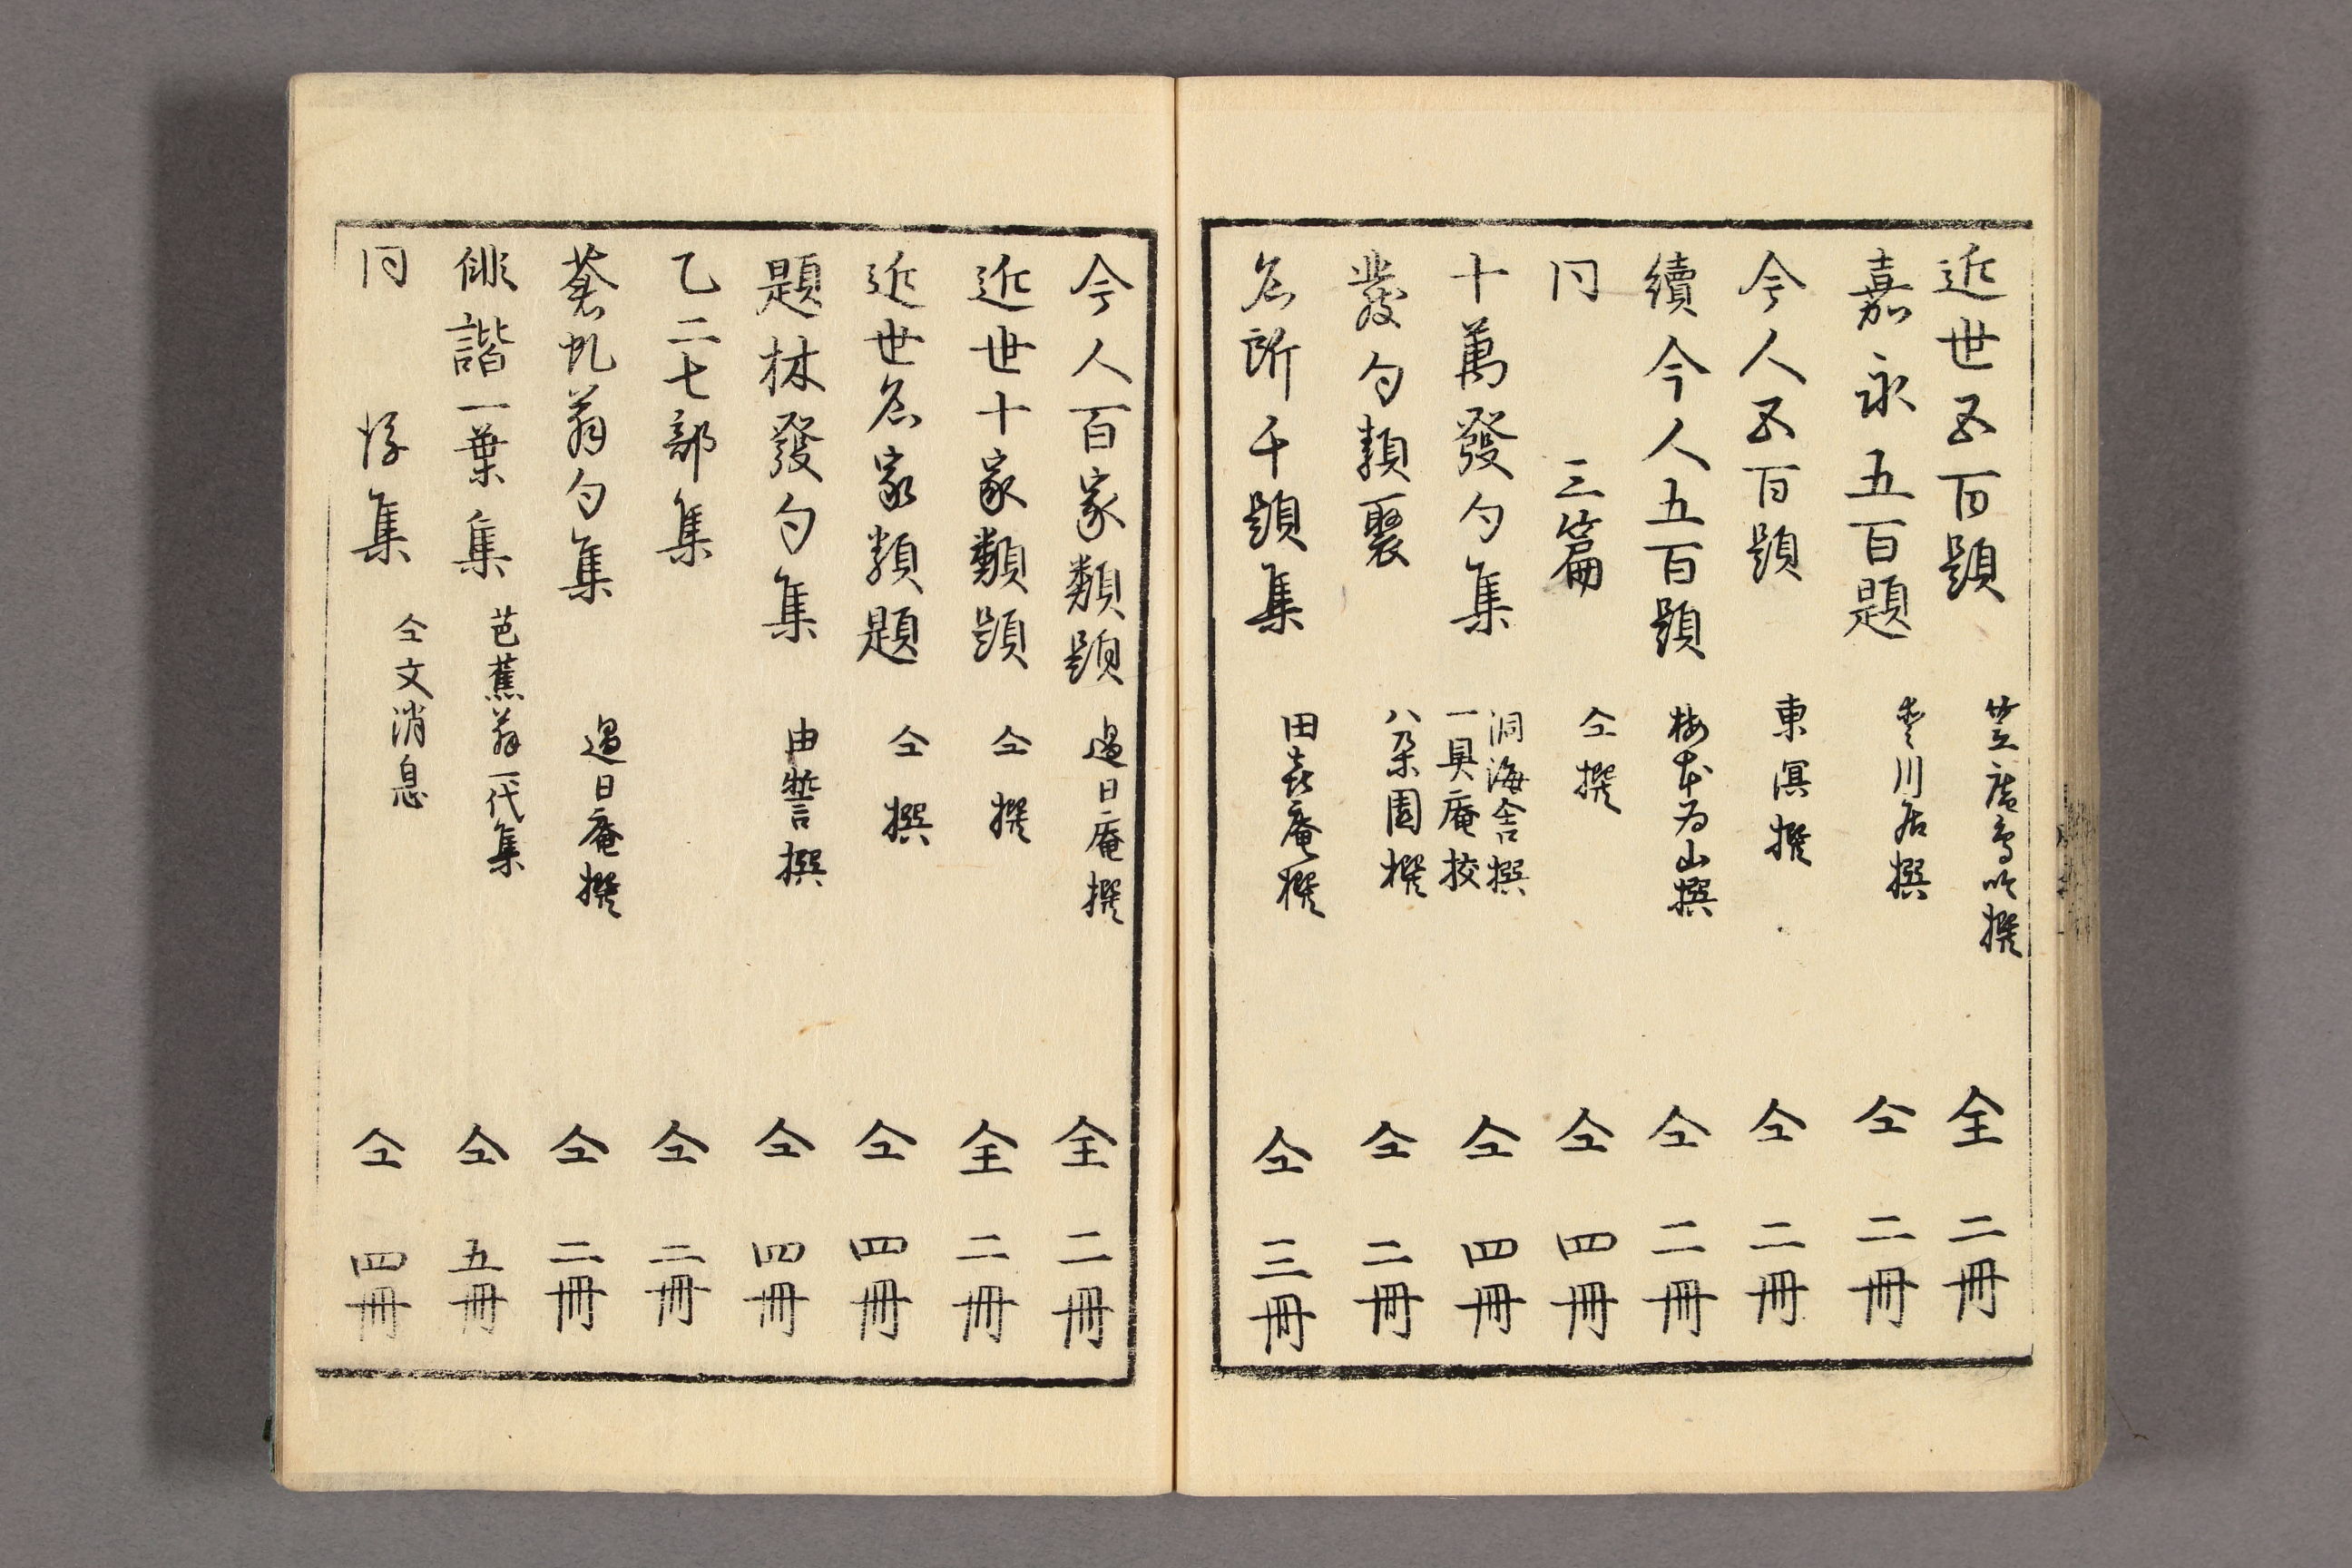 近世五百題 撰 全 二冊
嘉永五百題 川居撰 仝 二冊
今人五百題 東溟撰 仝 二冊
續今人五百題 梅本為山撰 仝 二冊
同 三篇 仝撰 仝 四冊
十萬發句集 洞海舎撰 一具庵挍 仝 四冊
發句類聚 八朶園撰 仝 二冊
名所千題集 田喜庵撰 仝 三冊
今人百家類題 過日庵撰 全 二冊
近世十家類題 仝撰 全 二冊
近世名家類題 仝撰 仝 四冊
題林發句集 由誓撰 仝 四冊
乙二七部集 仝 二冊
蒼虬翁句集 過日庵撰 仝 二冊
俳諧一葉集 芭蕉翁一代集 仝 五冊
同 集 仝文消息 仝 四冊